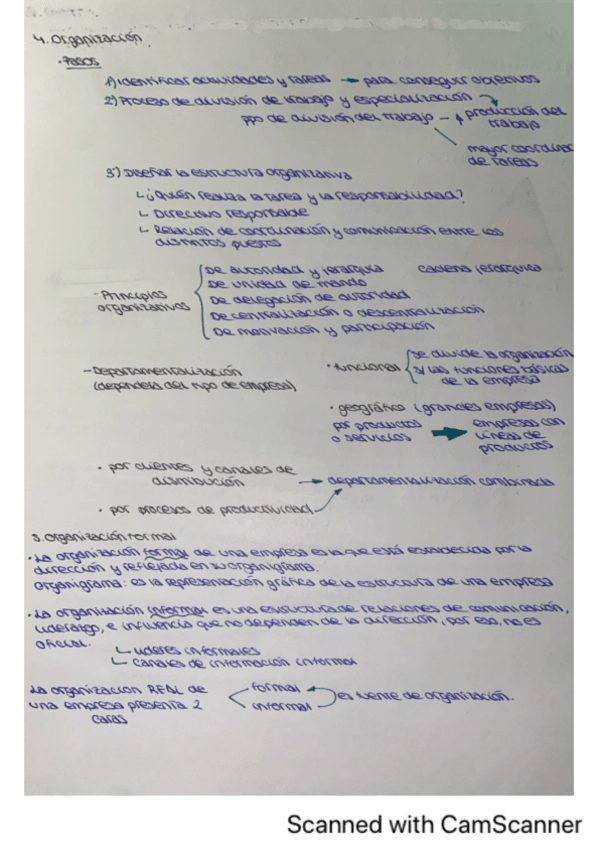 4. Organización
· Pasos
1) Identificar actividades y tareas → para conseguir objetivos
2) Proceso de división de trabajo y especialización
ppo de división del trabajo → producción del trabajo
mayor coordinac de tareas
3) Diseñar la estructura organizativa
↳ ¿Quién realiza la tarea y la responsabilidad?
↳ Directivo responsable
↳ Relación de coordinación y comunicación entre los
distintos puestos
- Principios organizativos
De autoridad y jerarquía cadena jerárquica
De unidad de mando
De delegación de autoridad
De centralización o descentralización
De motivación y participación
- Departamentalización
(dependerá del tipo de empresa)
· funcional
se divide la organización
s/ las funciones básicas
de la empresa
· geográfico (grandes empresas)
por productos o servicios → empresas con líneas de productos
· por clientes y canales de
distribución → departamentalización combinada
· por procesos de productividad
5. Organización formal
· La organización formal de una empresa es la que está establecida por la
dirección y reflejada en su organigrama.
Organigrama: es la representación gráfica de la estructura de una empresa
· La organización informal es una estructura de relaciones de comunicación,
liderazgo, e influencia que no dependen de la dirección, por eso, no es
oficial.
↳ Líderes informales
↳ Canales de información informal
La organización REAL de
una empresa presenta 2
caras
formal
informal
de organización.
Scanned with CamScanner